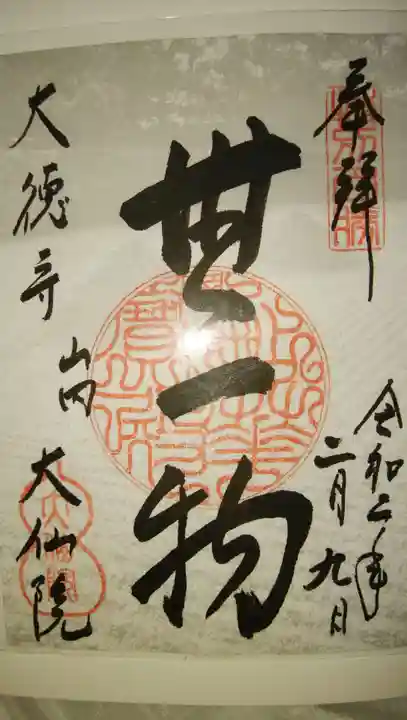 奉拝
令和二年
二月九日
無一物
大徳寺 山内 大仙院